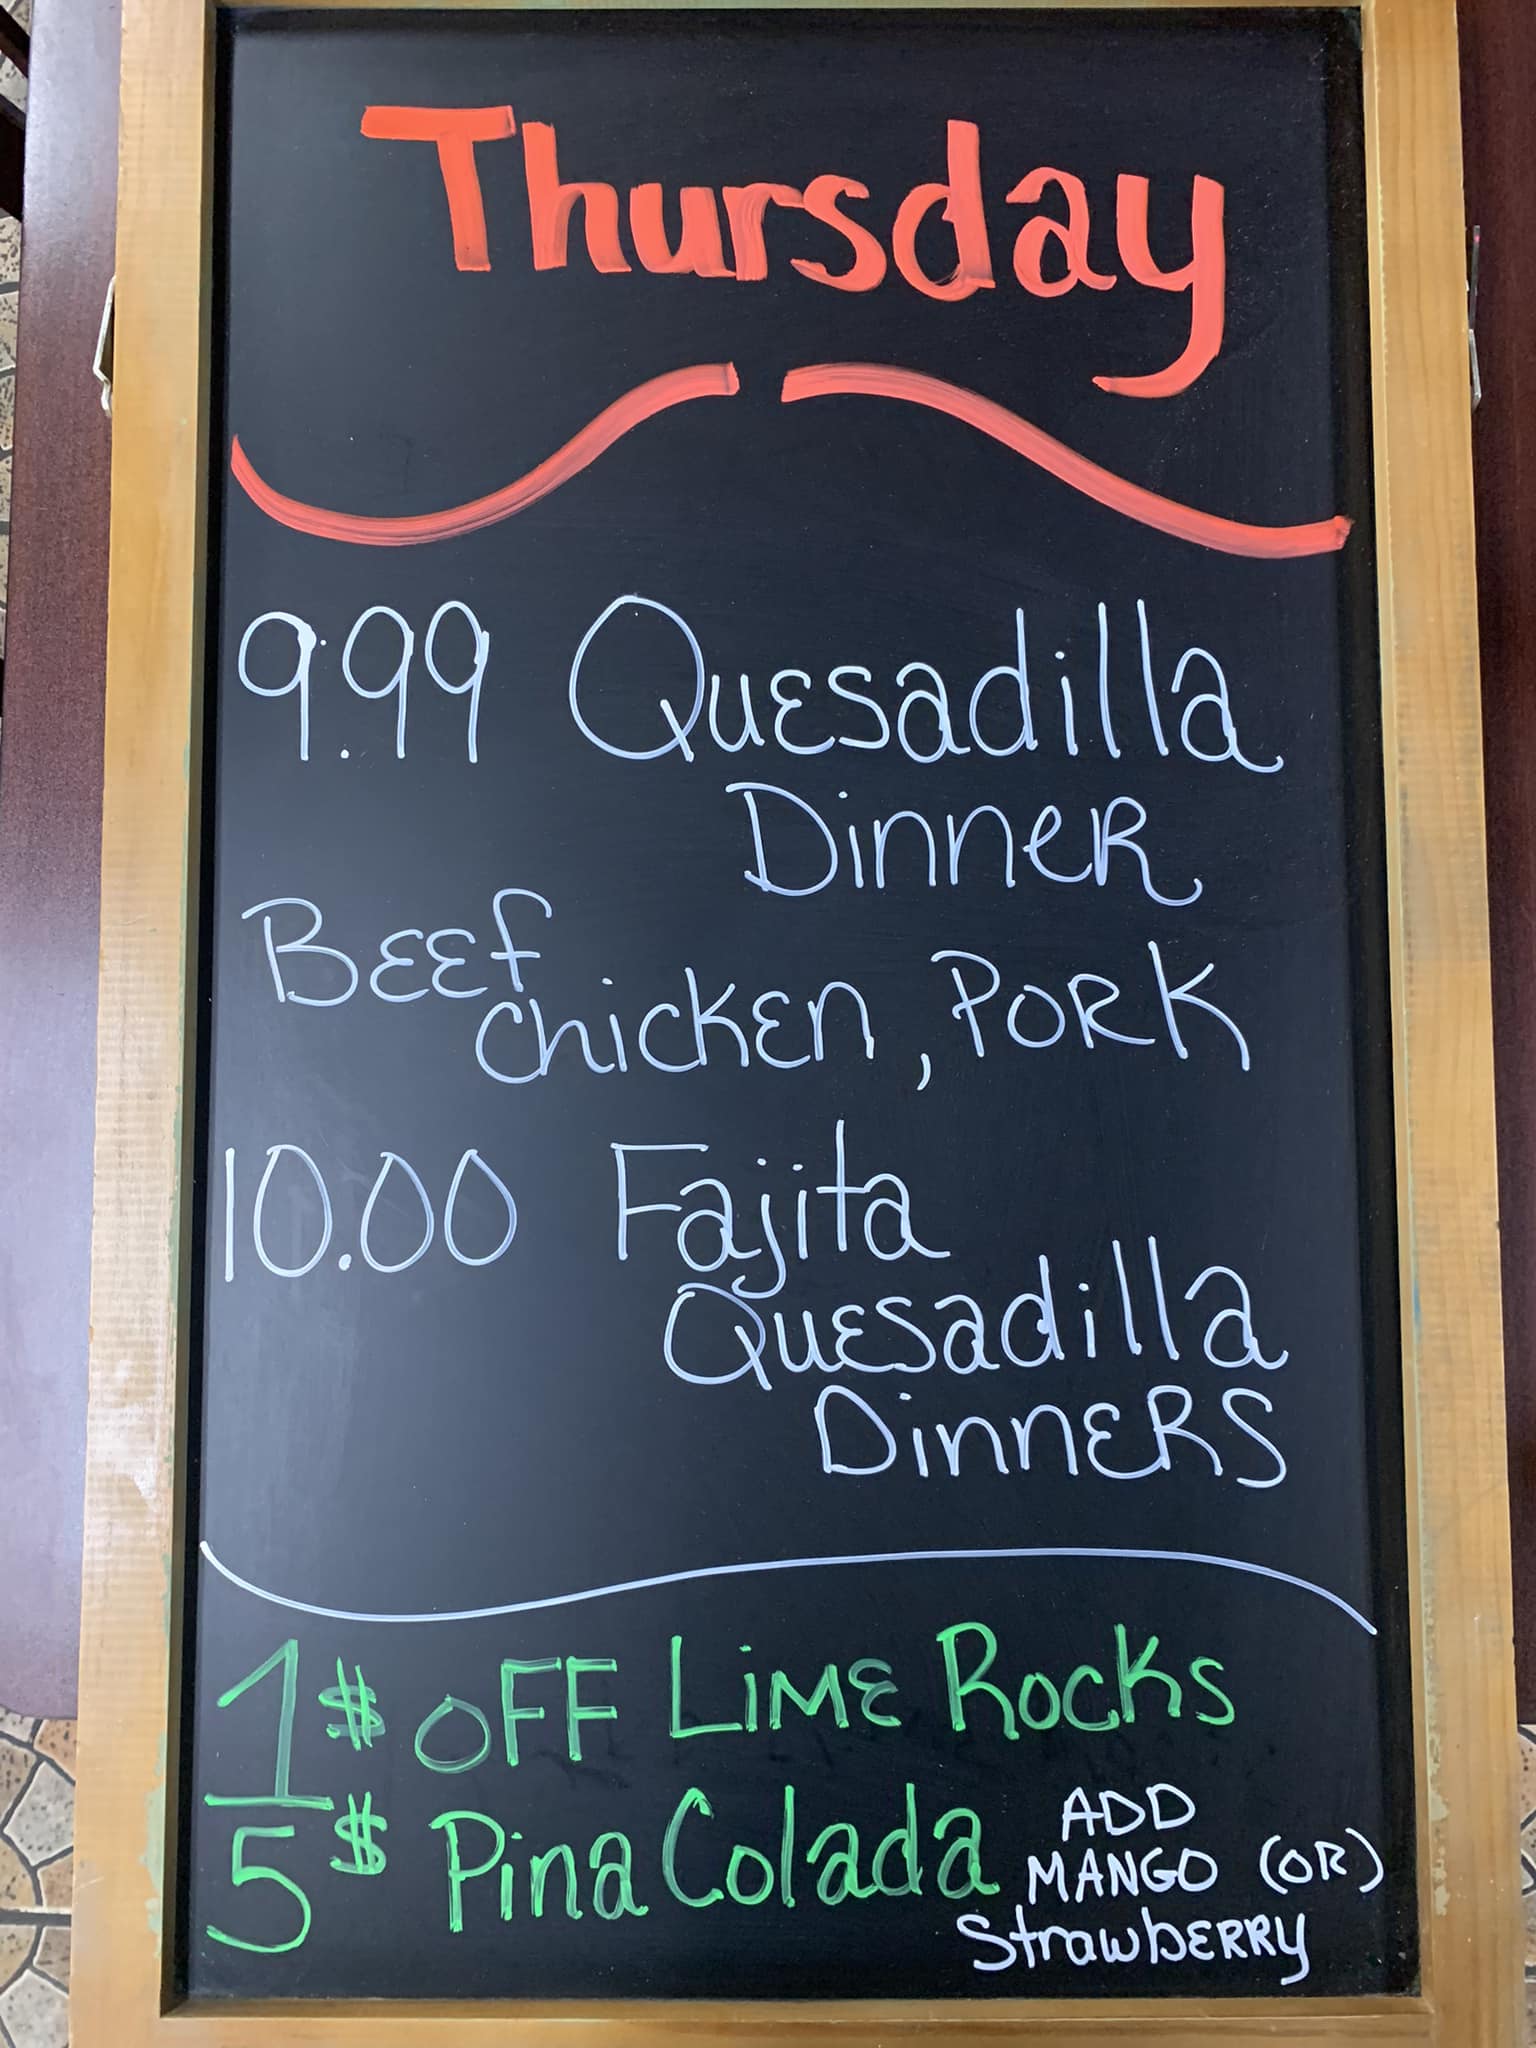 Thursday
9.99 Quesadilla
Dinner
Beef
Chicken, Pork
10.00 Fajita
Quesadilla
Dinners
1$ OFF Lime Rocks
5$ Pina Colada
ADD
MANGO (OR)
Strawberry